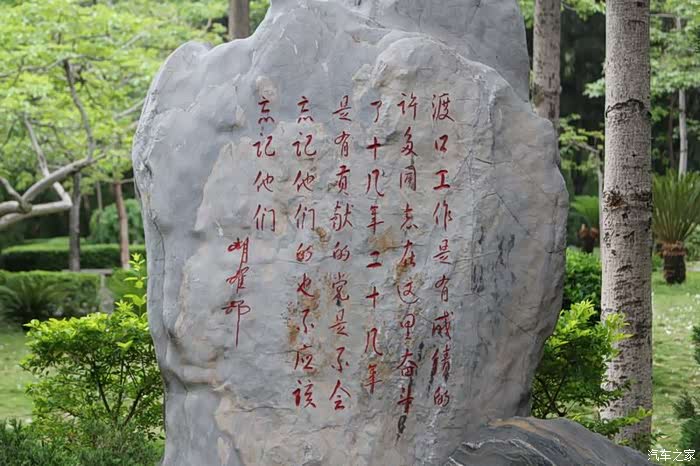 渡口工作是有成绩的
许多同志在这里奋斗
了十几年二十几年
是有贡献的党是不会
忘记他们的也不应该
忘记他们
胡耀邦
汽车之家